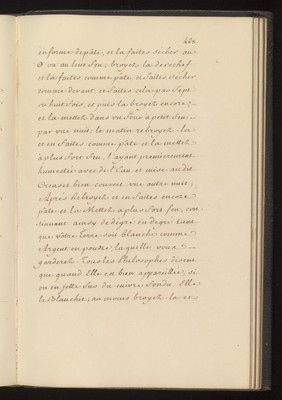 460.
en forme de pâte, et la faites secher au
☉ ou au lent feu, broyéz la derechef
et la faites comme pâte, et faites secher
comme devant, et faites cela par sept
ou huit fois, et puis la broyéz encore
et la mettéz dans un four a petit feu
par une nuit, le matin rebroyéz la
et en faites comme pâte et la mettéz
à plus fort feu, l'ayant premierement
humectée avec de l'Eau et mise audit
Creuset bien couvert une autre nuit;
Après rebroyéz et en faites encore
pâte et la Mettéz a plus fort feu, con
tinuant ainsy de degré du degré tant
que vôtre terre soit blanche comme
Argent en poudre, laquelle vous
garderéz. Tous les Philosophes disent
que quand Elle est bien appareillée, si
on en jette sur du cuivre fondu Elle
le Blanchit; au moins broyéz la ce